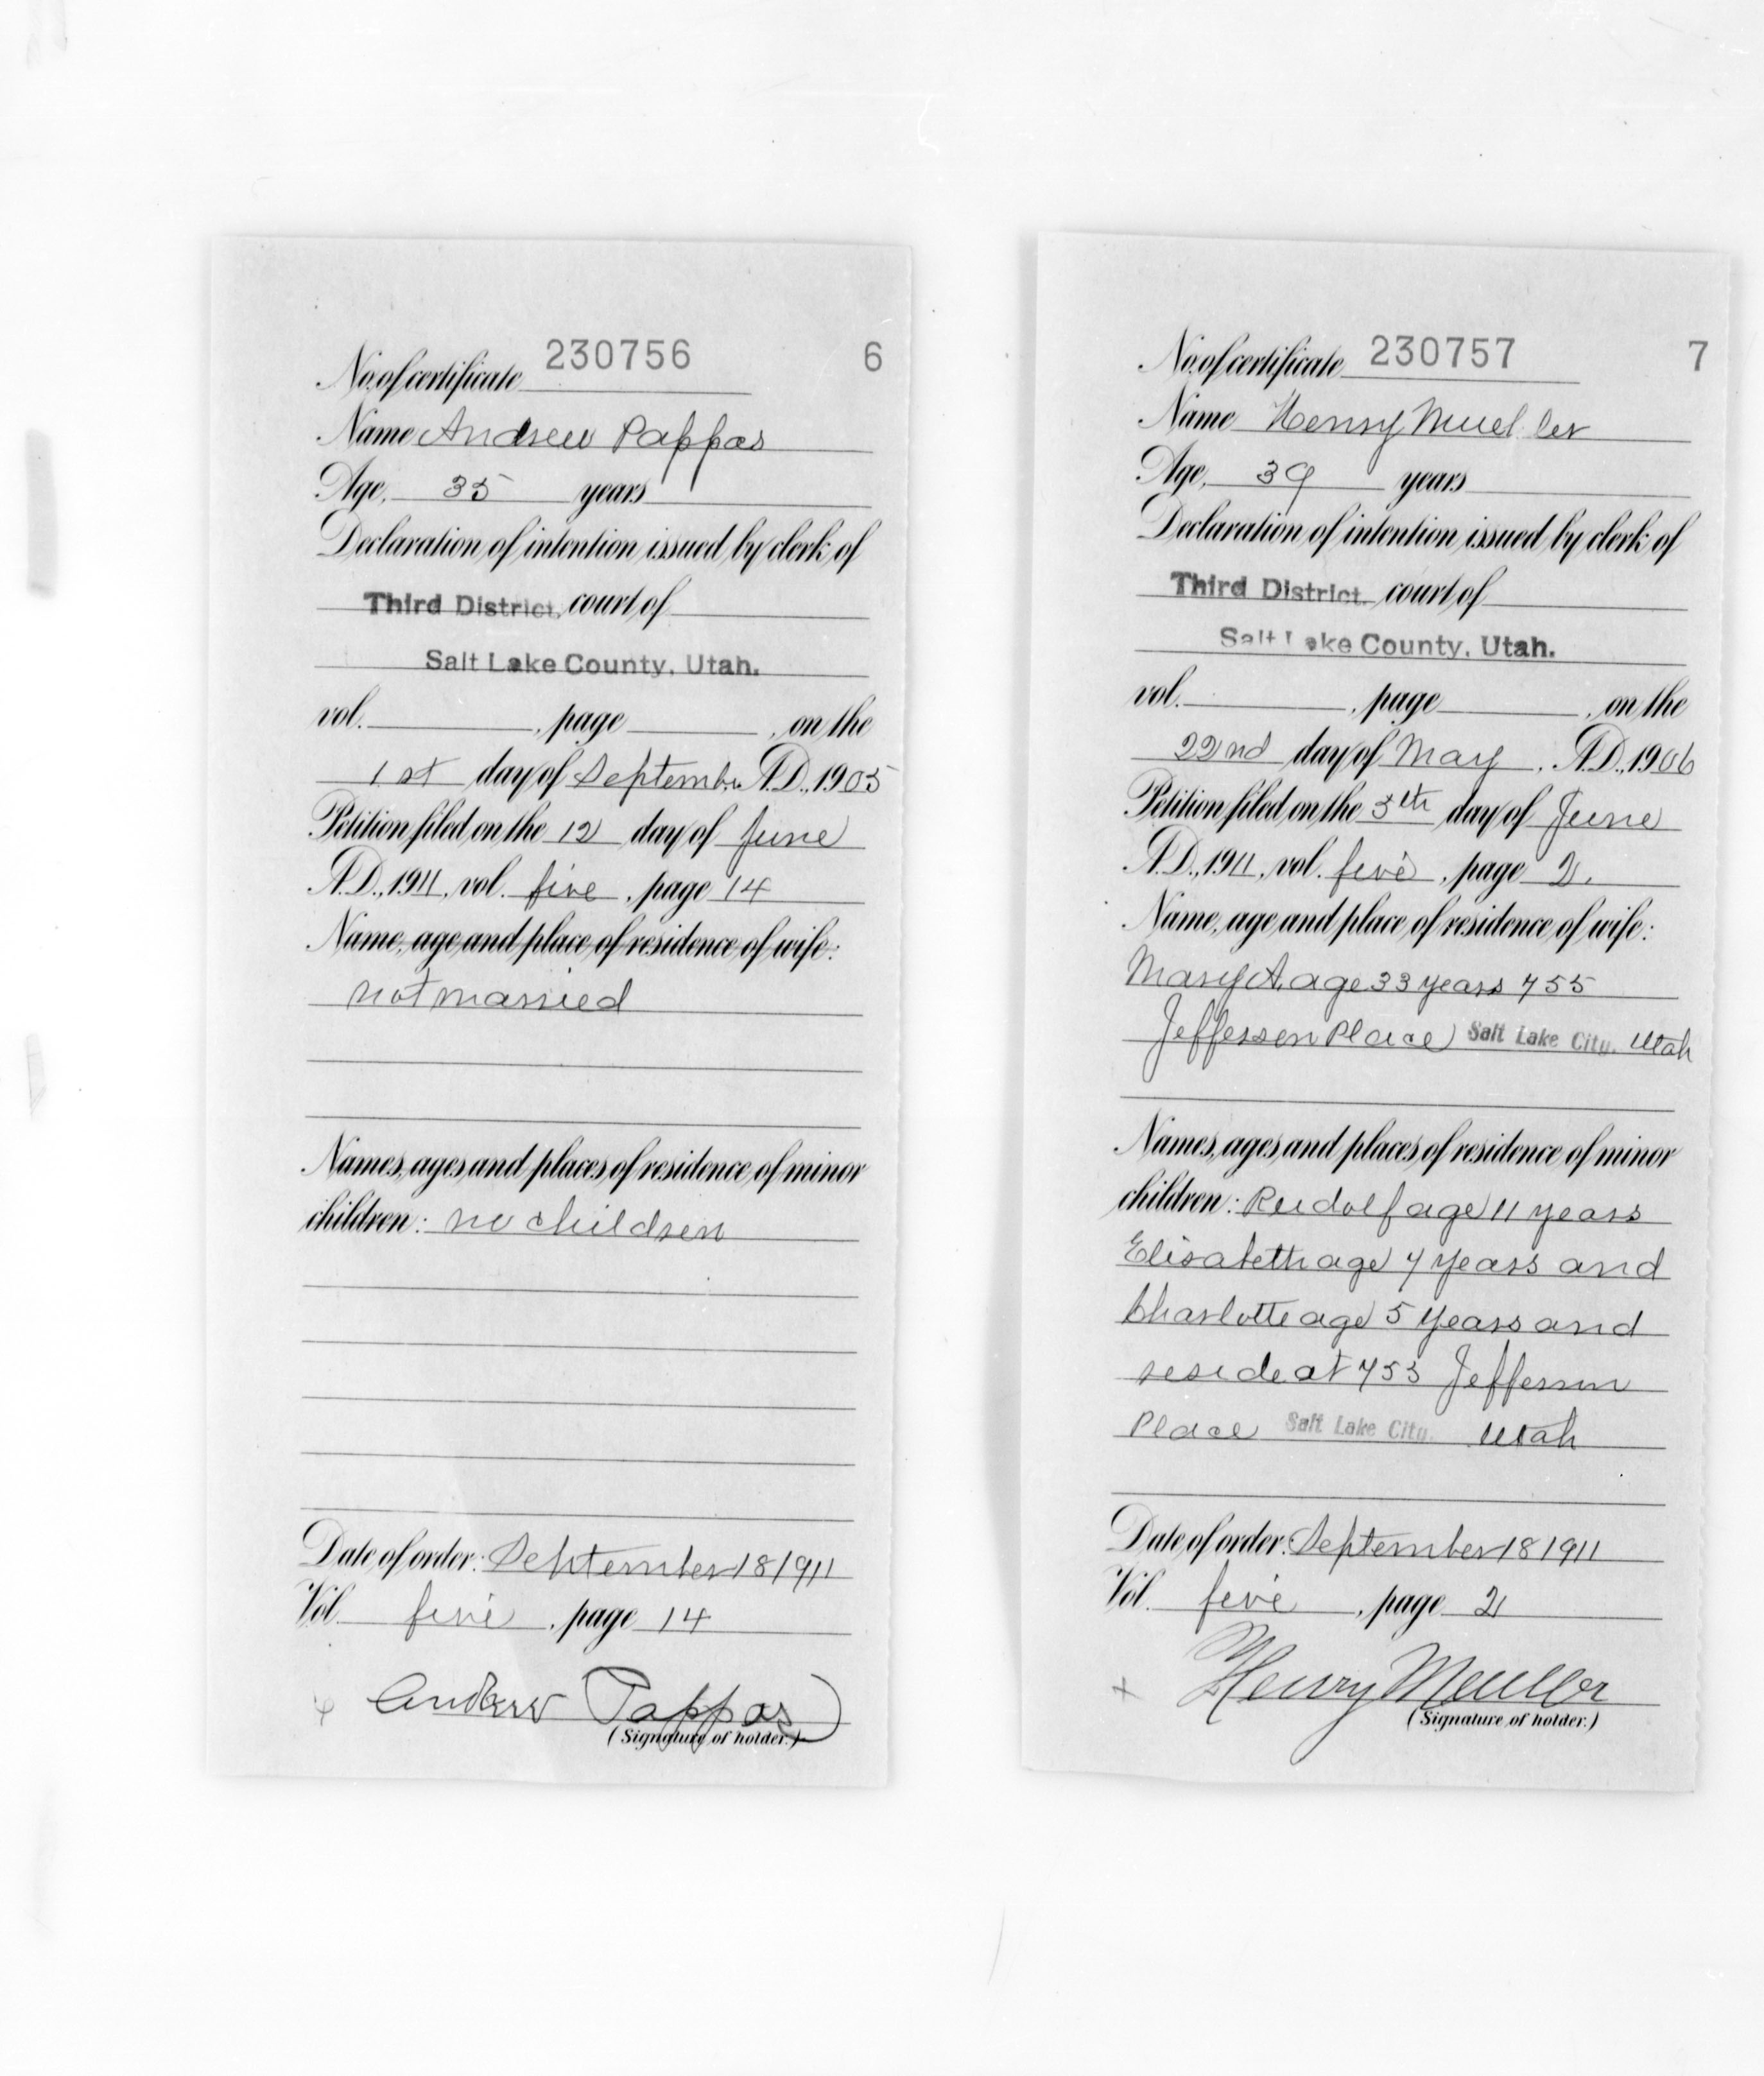 No. of certificate 230756 6
Name Andrew Pappas
Age, 35 years
Declaration of intention issued by clerk of
Third District, court of
Salt Lake County, Utah.
vol. , page , on the
1st day of September A.D., 1905
Petition filed on the 12 day of June
A.D., 1911, vol. five, page 14
Name, age and place of residence of wife:
not married
Names, ages and places of residence of minor
children: no children
Date of order: September 18 1911
Vol. five, page 14
Andrew Pappas
(Signature of holder.)
No. of certificate 230757 7
Name Henry Mueller
Age, 39 years
Declaration of intention issued by clerk of
Third District. court of
Salt Lake County, Utah.
vol. , page , on the
22nd day of May, A.D., 1906
Petition filed on the 5th day of June
A.D., 1911, vol. five, page 2.
Name, age and place of residence of wife:
Mary A. age 33 years 755
Jefferson Place Salt Lake City, Utah
Names, ages and places of residence of minor
children: Rudolf age 11 years
Elisabeth age 7 years and
Charlotte age 5 years and
reside at 755 Jefferson
Place Salt Lake City, Utah
Date of order: September 18 1911
Vol. five, page 2
Henry Mueller
(Signature of holder.)